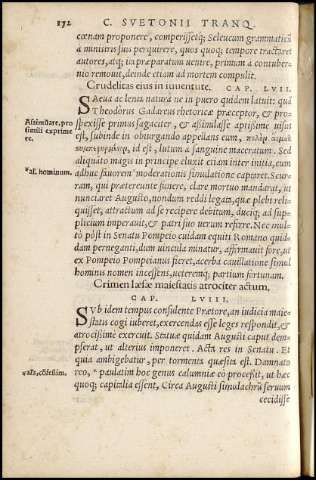 172 C. SVETONII TRANQ.
cœnam proponere, comperissetq; Seleucum grammaticũ
a ministris suis perquirere, quos quoq; tempore tractaret
autores, atq; ita præparatum uenire, primum a contuber-
nio remouit, deinde etiam ad mortem compulit.
Crudelitas eius in iuuentute. CAP. LVII.
SAeua ac lenta natura ne in puero quidem latuit: quã
Theodorus Gadareus rhetoricæ præceptor, & pro
Assimilare, pro
spexisse primus sagaciter, & assimilasse aptissime uisus
simili exprime
est, subinde in obiurgando appellans eum, πηλὸν αἵματι
re.
id est, lutum a sanguine maceratum. Sed
aliquãto magis in principe eluxit etiam inter initia, cum
*al. hominum.
adhuc fauorem *moderationis simulatione captaret. Scur
ram, qui prætereunte funere, clare mortuo mandarat, ut
nunciaret Augusto, nondum reddi legata, quæ plebi reli-
quisset, attractum ad se recipere debitum, duciq; ad sup-
plicium imperauit, & patri suo uerum referre. Nec mul-
to pòst in Senatu Pompeio cuidam equiti Romano quid-
dam perneganti, dum uincula minatur, affirmauit fore, ut
ex Pompeio Pompeianus fieret, acerba cauillatione simul
hominis nomen incessens, ueteremq; partium fortunam.
Crimen læsæ maiestatis atrociter actum.
CAP. LVIII.
SVb idem tempus consulente Prætore, an iudicia maie-
statis cogi iuberet, exercendas esse leges respondit, &
atrocissime exercuit. Statuæ quidam Augusti caput dem-
pserat, ut alterius imponeret. Acta res in Senatu. Et
quia ambigebatur, per tormenta quæsita est. Damnato
reo, *paulatim hoc genus calumniæ eò processit, ut hæc
quoq; capitalia essent, Circa Augusti simulachrũ seruum
cecidisse